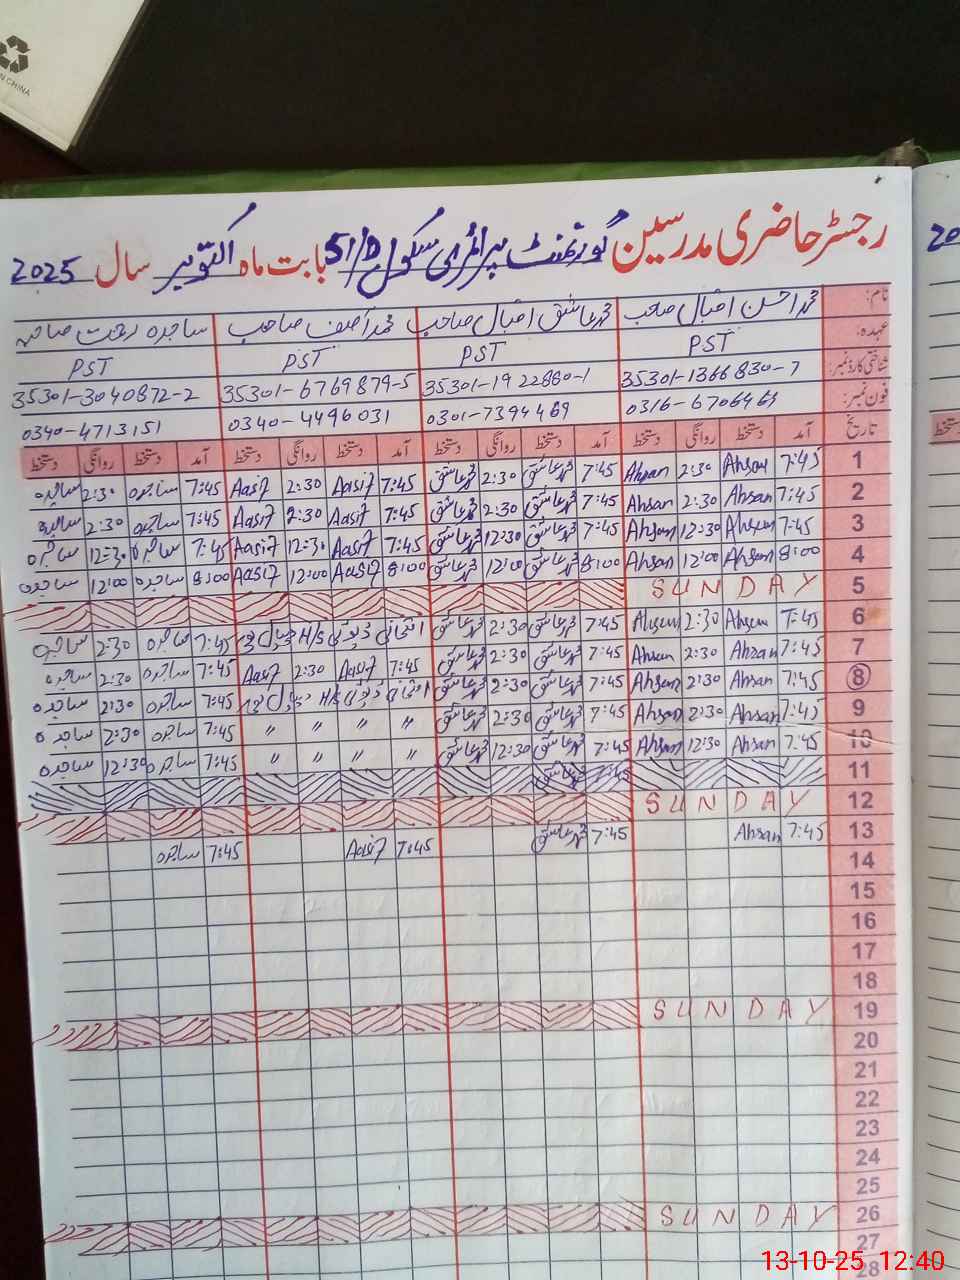 N CHINA
رجسٹر حاضری مدرسین گورنمنٹ پرائمری سکول 51/D بابت ماہ اکتوبر سال 2025
20
نام: محمد احسن اقبال صاحب محمد عاشق اقبال صاحب محمد آصف صاحب ساجدہ رحمت صاحبہ
عہدہ: PST PST PST PST
شناختی کارڈ نمبر: 35301-1366830-7 35301-1922880-1 35301-6769879-5 35301-3040872-2
فون نمبر: 0316-6706463 0301-7394469 0340-4496031 0340-4713151
تاریخ آمد دستخط روانگی دستخط آمد دستخط روانگی دستخط آمد دستخط روانگی دستخط آمد دستخط روانگی دستخط
1 7:45 Ahsan 2:30 Ahsan 7:45 محمد عاشق 2:30 محمد عاشق 7:45 Aasif 2:30 Aasif 7:45 ساجدہ 2:30 ساجدہ
2 7:45 Ahsan 2:30 Ahsan 7:45 محمد عاشق 2:30 محمد عاشق 7:45 Aasif 2:30 Aasif 7:45 ساجدہ 2:30 ساجدہ
3 7:45 Ahsan 12:30 Ahsan 7:45 محمد عاشق 12:30 محمد عاشق 7:45 Aasif 12:30 Aasif 7:45 ساجدہ 12:30 ساجدہ
4 8:00 Ahsan 12:00 Ahsan 8:00 محمد عاشق 12:00 محمد عاشق 8:00 Aasif 12:00 Aasif 8:00 ساجدہ 12:00 ساجدہ
5 SUNDAY
6 7:45 Ahsan 2:30 Ahsan 7:45 محمد عاشق 2:30 محمد عاشق امتحانی ڈیوٹی H/S 7:45 ساجدہ 2:30 ساجدہ
7 7:45 Ahsan 2:30 Ahsan 7:45 محمد عاشق 2:30 محمد عاشق 7:45 Aasif 2:30 Aasif 7:45 ساجدہ 2:30 ساجدہ
8 7:45 Ahsan 2:30 Ahsan 7:45 محمد عاشق 2:30 محمد عاشق امتحانی ڈیوٹی H/S 7:45 ساجدہ 2:30 ساجدہ
9 7:45 Ahsan 2:30 Ahsan 7:45 محمد عاشق 2:30 محمد عاشق " " " " 7:45 ساجدہ 2:30 ساجدہ
10 7:45 Ahsan 12:30 Ahsan 7:45 محمد عاشق 12:30 محمد عاشق " " " " 7:45 ساجدہ 12:30 ساجدہ
11 7:45 محمد عاشق
12 SUNDAY
13 7:45 Ahsan 7:45 محمد عاشق 7:45 Aasif 7:45 ساجدہ
14
15
16
17
18
19 SUNDAY
20
21
22
23
24
25
26 SUNDAY
27
28
دستخط
13-10-25 12:40